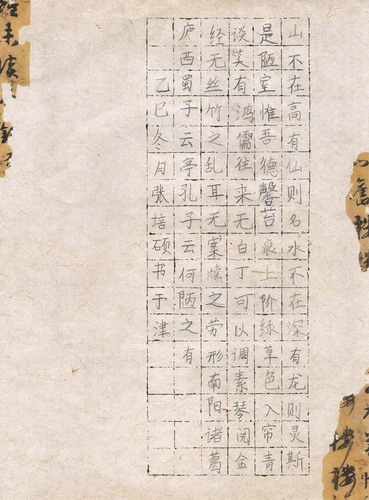 山不在高有仙则名水不在深有龙则灵斯
是陋室惟吾德馨苔痕上阶绿草色入帘青
谈笑有鸿儒往来无白丁可以调素琴阅金
经无丝竹之乱耳无案牍之劳形南阳诸葛
庐西蜀子云亭孔子云何陋之有
乙巳冬月张培硕书于津